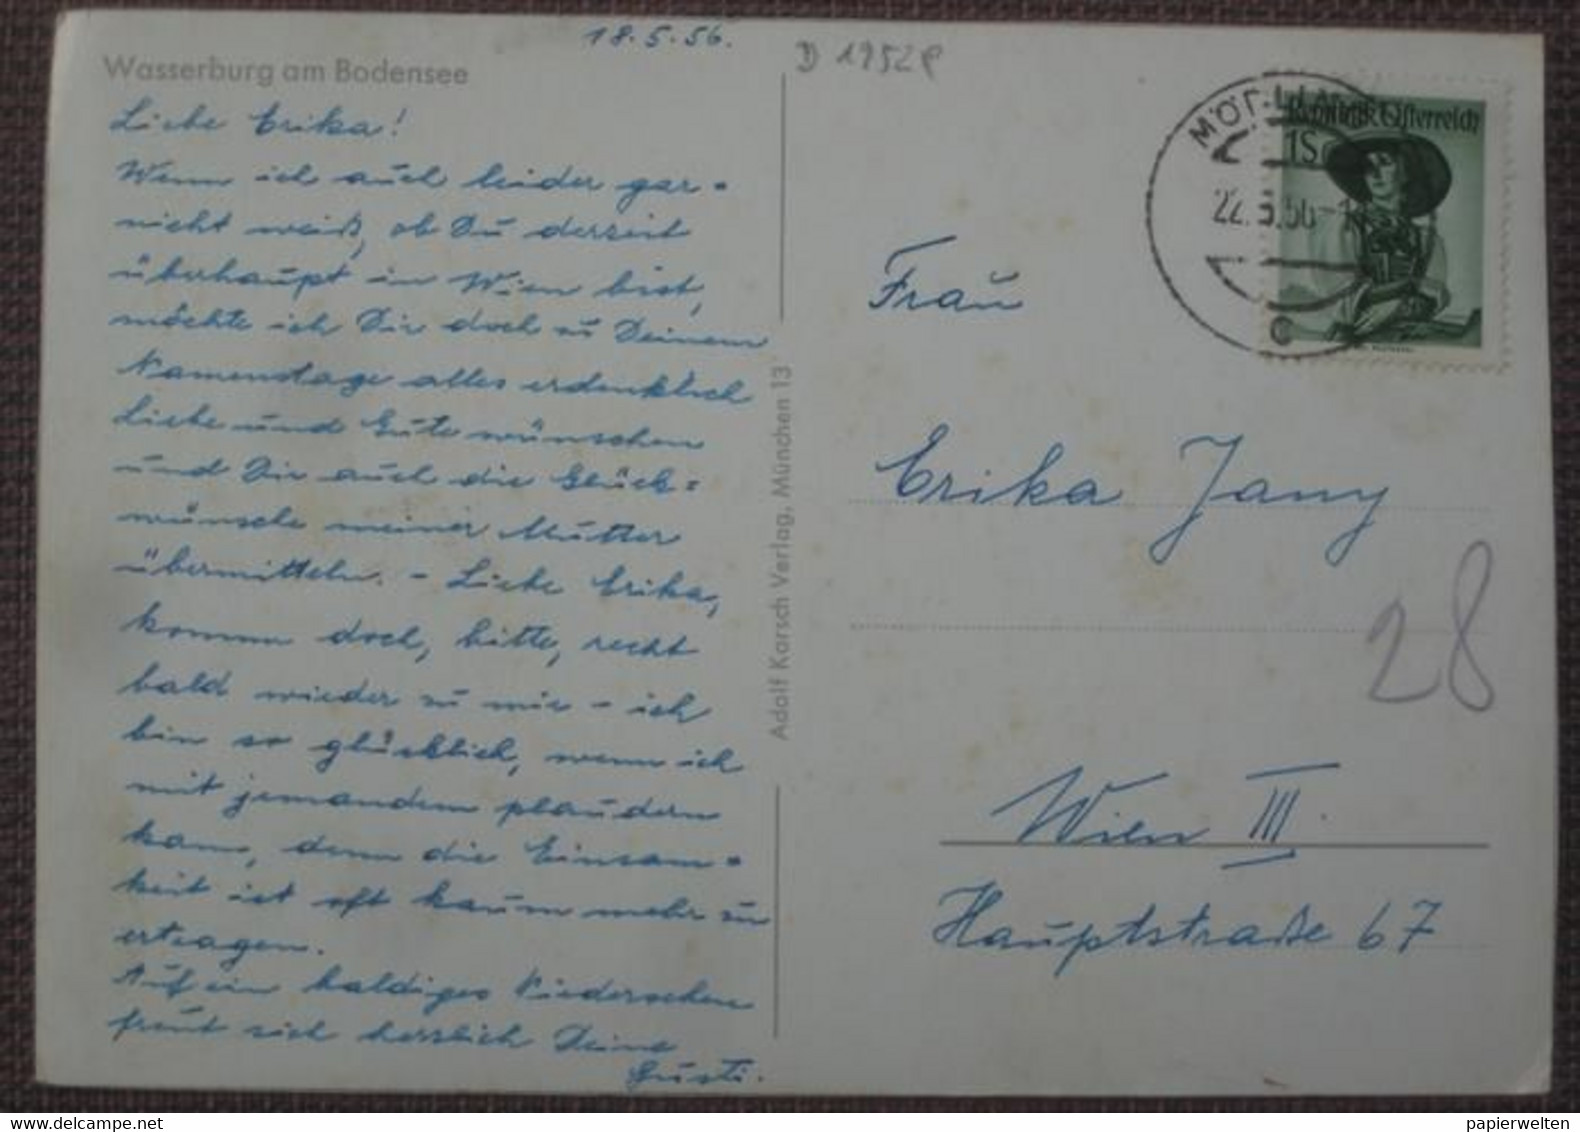 18.5.56.
D 1952 P
Wasserburg am Bodensee
Liebe Erika!
Wenn ich auch leider gar=
nicht weiß, ob Du derzeit
überhaupt in Wien bist,
möchte ich Dir doch zu Deinem
Namenstage alles erdenklich
Liebe und Gute wünschen
und Dir auch die Glück=
wünsche meiner Mutter
übermitteln. - Liebe Erika,
komm doch, bitte, recht
bald wieder zu mir - ich
bin so glücklich, wenn ich
mit jemandem plaudern
kann, denn die Einsam=
keit ist oft kaum mehr zu
ertragen.
Auf ein baldiges Wiedersehen
freut sich herzlich Deine
Gusti.
Adolf Karsch Verlag, München 13
MÖDLING
22.5.56-1
c
Republik Österreich
1S
Frau
Erika Jany
28
Wien III.
Hauptstraße 67
papierwelten